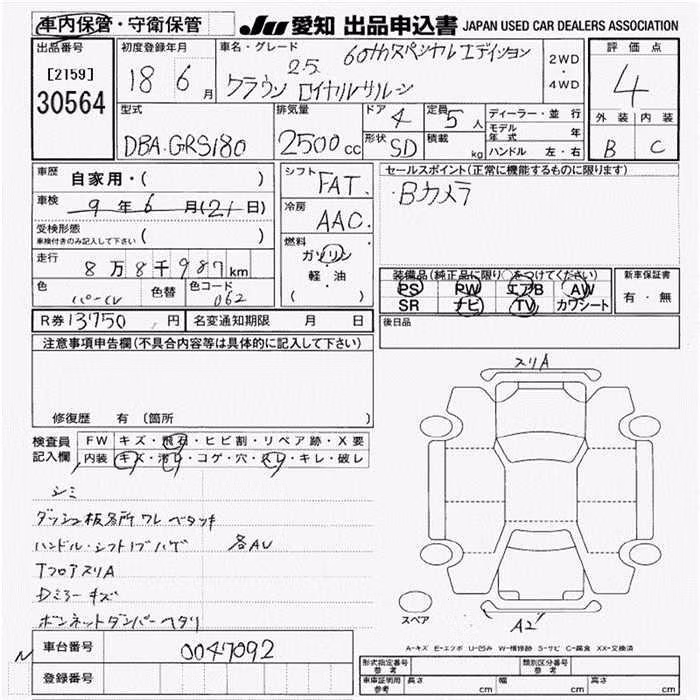 車内保管・守衛保管 JU 愛知 出品申込書 JAPAN USED CAR DEALERS ASSOCIATION
出品番号 初度登録年月 車名・グレード 60thスペシャルエディション 2WD・4WD 評価点
[2159] 2.5
30564 18 6月 クラウン ロイヤルサルーン 4
型式 排気量 ドア 4 定員 5人 ディーラー・並行 外装 内装
モデル年式 年
DBA-GRS180 2500cc 形状 SD 積載 kg ハンドル 左・右 B C
車歴 自家用・( ) シフト FAT. セールスポイント(正常に機能するものに限ります)
車検 9年6月(21日) 冷房 AAC. ・Bカメラ
受検形態
車検付きのみ記入して下さい ( )
燃料 ガソリン
走行 8万8千987km 軽・油
装備品(純正品に限り○をつけてください) 新車保証書
色 パール 色替 色コード 062 ( ) PS PW エアB AW 有・無
SR ナビ TV カワシート
R券 13750円 名変通知期限 月 日 後日品
注意事項申告欄(不具合内容等は具体的に記入して下さい)
スリA
修復歴 有 (箇所 )
検査員記入欄 FW キズ・飛石・ヒビ割・リペア跡・X要
内装 キズ・汚レ・コゲ・穴・スレ・キレ・破レ
シミ
ダッシュ板各所ワレベタツキ
ハンドル・シフトノブハゲ 各AU
TフロアスリA
Dミラーキズ
ボンネットダンパーヘタリ
スペア A2
A-キズ E-エクボ U-凹み W-補修跡 S-サビ C-腐食 XX-交換済
車台番号 0047092
登録番号
形式指定番号 参考 類別区分番号 参考
車庫証明用 参考 長さ cm 幅 cm 高さ cm